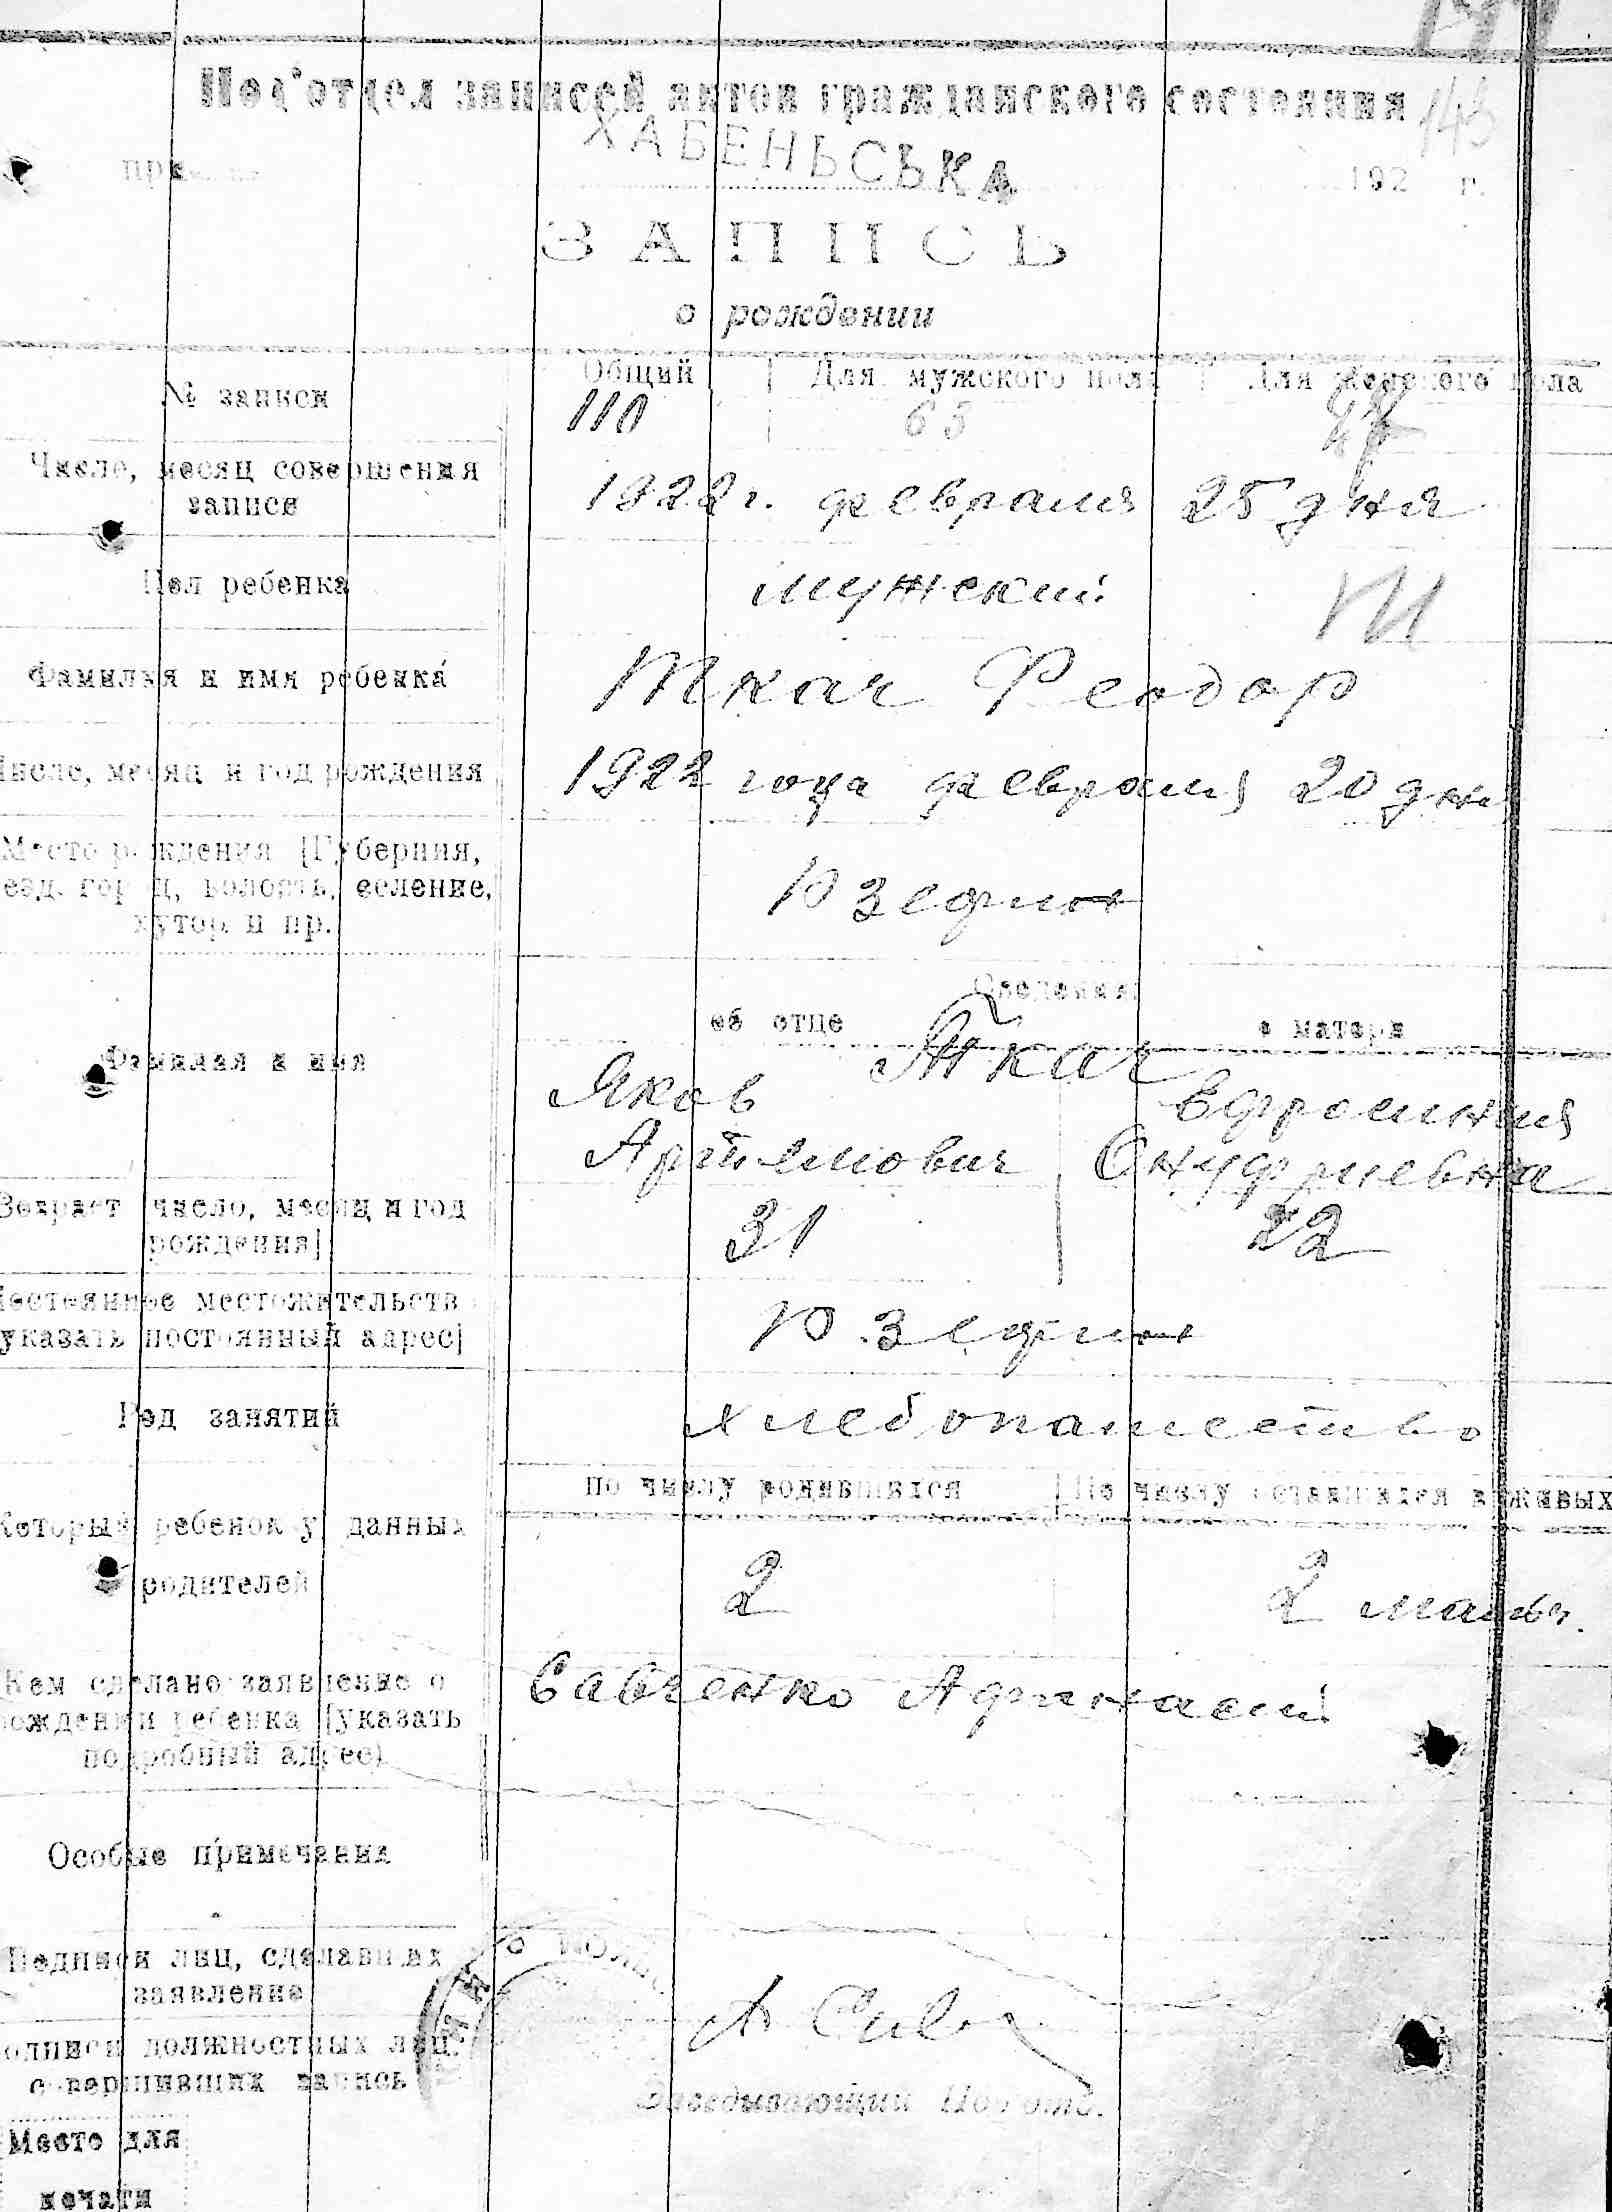 Под'отдел записей актов гражданского состояния
145
при
ХАБЕНЬСЬКА
192 г.
ЗАПИСЬ
о рождении
№ записи
Общий
Для мужского пола
Для женского пола
110
65
Число, месяц совершения
записи
1922 г. февраля 25 дня
Пол ребенка
мужский
Фамилия и имя ребенка
Ткач Феодор
Число, месяц и год рождения
1922 года февраля 20 дня
Место рождения [Губерния,
уезд, город, волость, селение,
хутор и пр.
Юзефин
Сведения
об отце
о матери
Фамилия и имя
Ткач
Яков
Ефросиния
Артемович
Онуфриевна
Возраст [число, месяц и год
рождения]
31
22
Постоянное местожительств
указать постоянный адрес]
Юзефин
Род занятий
хлебопашество
по числу родившихся
По числу оставшихся в живых
Который ребенок у данных
родителей
2
2
Кем сделано заявление о
рождении ребенка [указать
подробный адрес)
Савченко Афанасий
Особые примечания
Подписи лиц, сделавших
заявление
Подписи должностных лиц,
совершивших запись
Заведывающий Под'отд.
Место для
печати